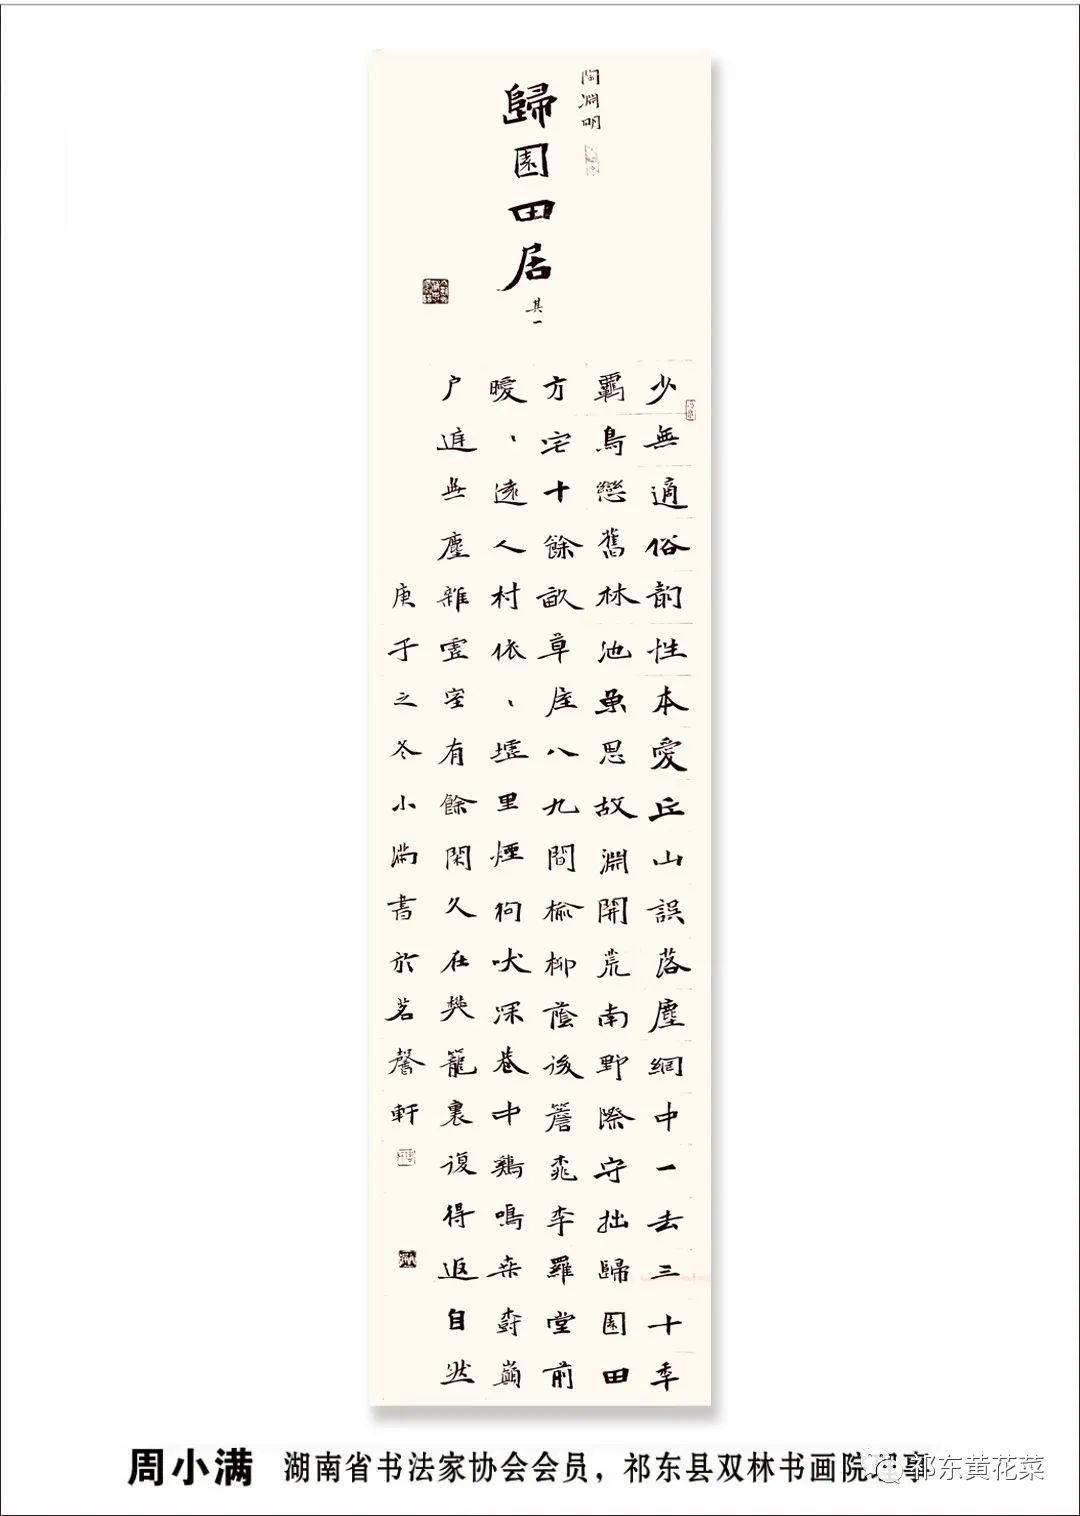 陶淵明
歸園田居
其一
少無適俗韵性本愛丘山誤落塵網中一去三十秊
羈鳥戀舊林池魚思故淵開荒南野際守拙歸園田
方宅十餘畝草屋八九間榆柳蔭後簷桃李羅堂前
曖、遠人村依、墟里煙狗吠深巷中鷄鳴桑樹巔
户庭無塵雜虛室有餘閑久在樊籠裏復得返自然
庚子之冬小满書於茗馨軒
周小满 湖南省书法家协会会员，祁东县双林书画院理事
祁东黄花菜